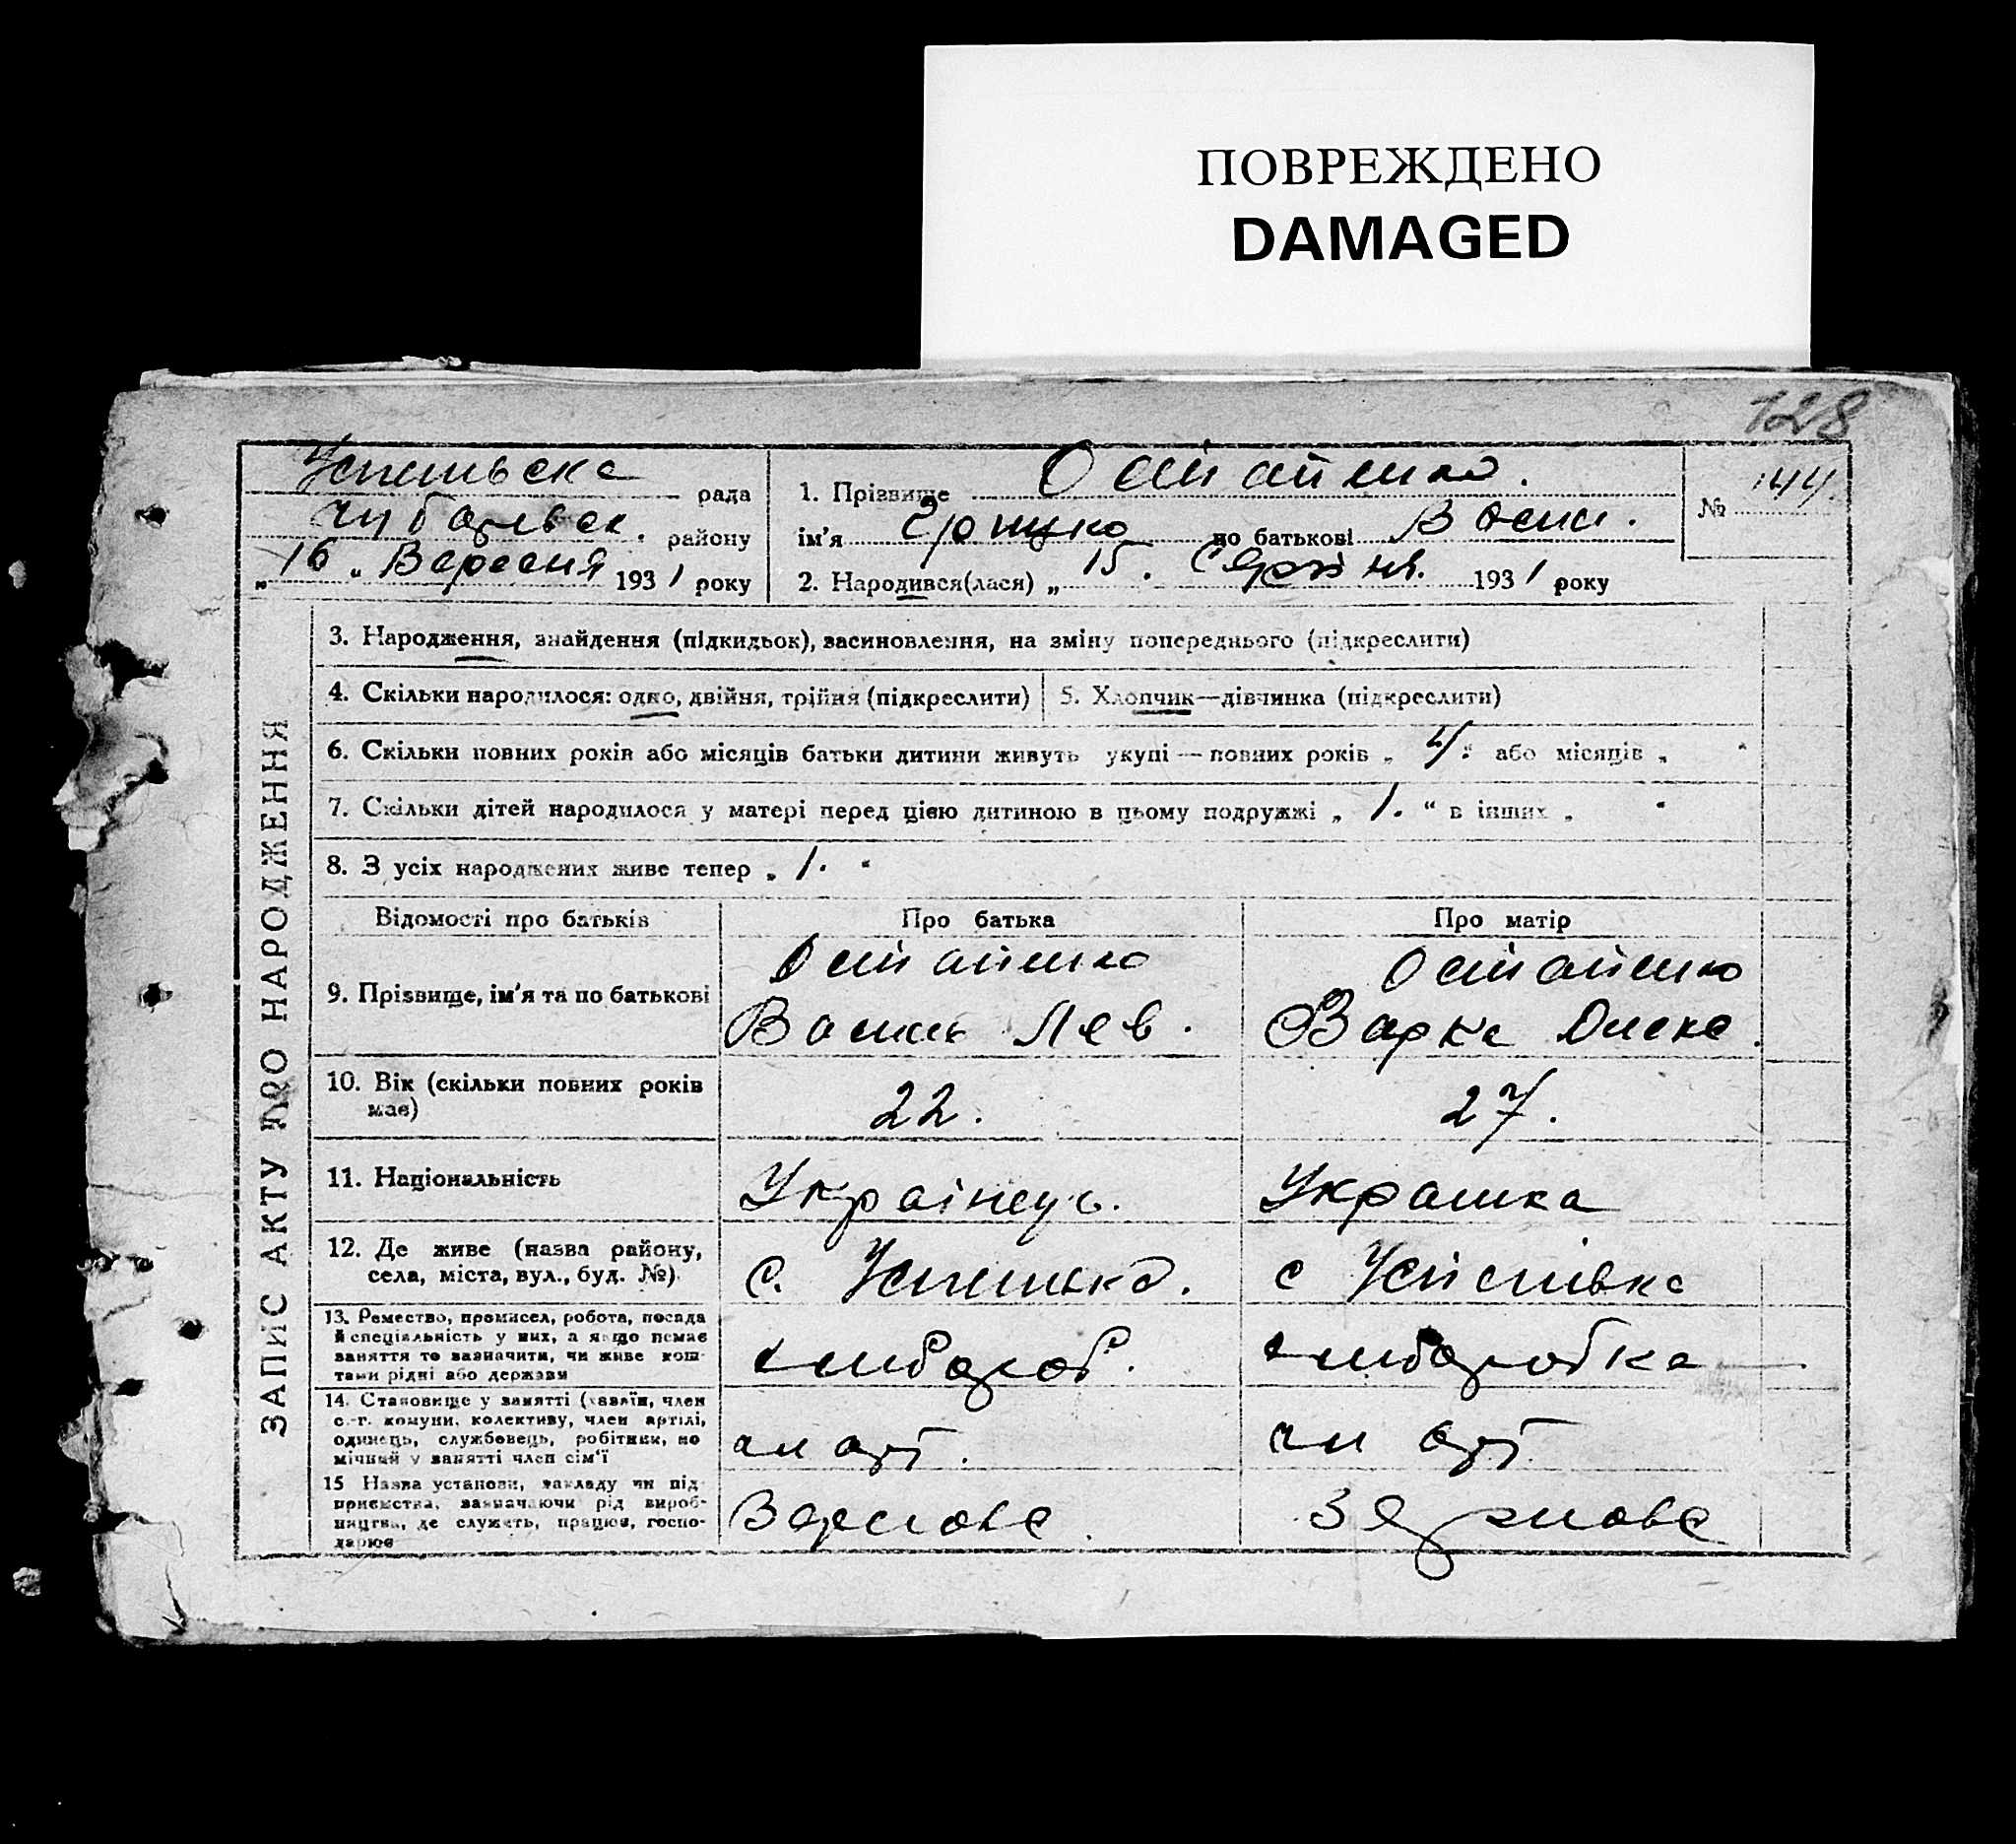 ПОВРЕЖДЕНО
DAMAGED
128
рада
району
„16“ Вересня 1931 року
1. Прізвище Остапенко.
ім'я по батькові Васил.
2. Народився(лася) „15. Серпня. 1931 року
№ 144.
ЗАПИС АКТУ ПРО НАРОДЖЕННЯ
3. Народження, знайдення (підкидьок), засиновлення, на зміну попереднього (підкреслити)
4. Скільки народилося: одно, двійня, трійня (підкреслити)
5. Хлопчик—дівчинка (підкреслити)
6. Скільки повних років або місяців батьки дитини живуть укупі — повних років „4.“ або місяців „ “
7. Скільки дітей народилося у матері перед цією дитиною в цьому подружжі „1.“ в інших „ “
8. З усіх народжених живе тепер „1.“
Відомості про батьків Про батька Про матір
9. Прізвище, ім'я та по батькові
Остапенко
Василь Лев.
Остапенко
Варка Олекс.
10. Вік (скільки повних років
має)
22.
27.
11. Національність
Українець.
Українка
12. Де живе (назва району,
села, міста, вул., буд. №)
с. Успенівка.
с Успенівка
13. Ремество, промисел, робота, посада
й спеціяльність у них, а якщо немає
заняття то зазначити, чи живе кош-
тами рідні або держави
хлібороб.
хліборобка
14. Становище у занятті (хазяїн, член
с.-г. комуни, колективу, член артілі,
одинець, службовець, робітник, по
мічний у занятті член сім'ї
чл арт.
чл арт.
15 Назва установи, закладу чи під-
приємства, зазначаючи рід вироб-
ництва, де служить, працює, госпо-
дарює
Зернове.
Зернове